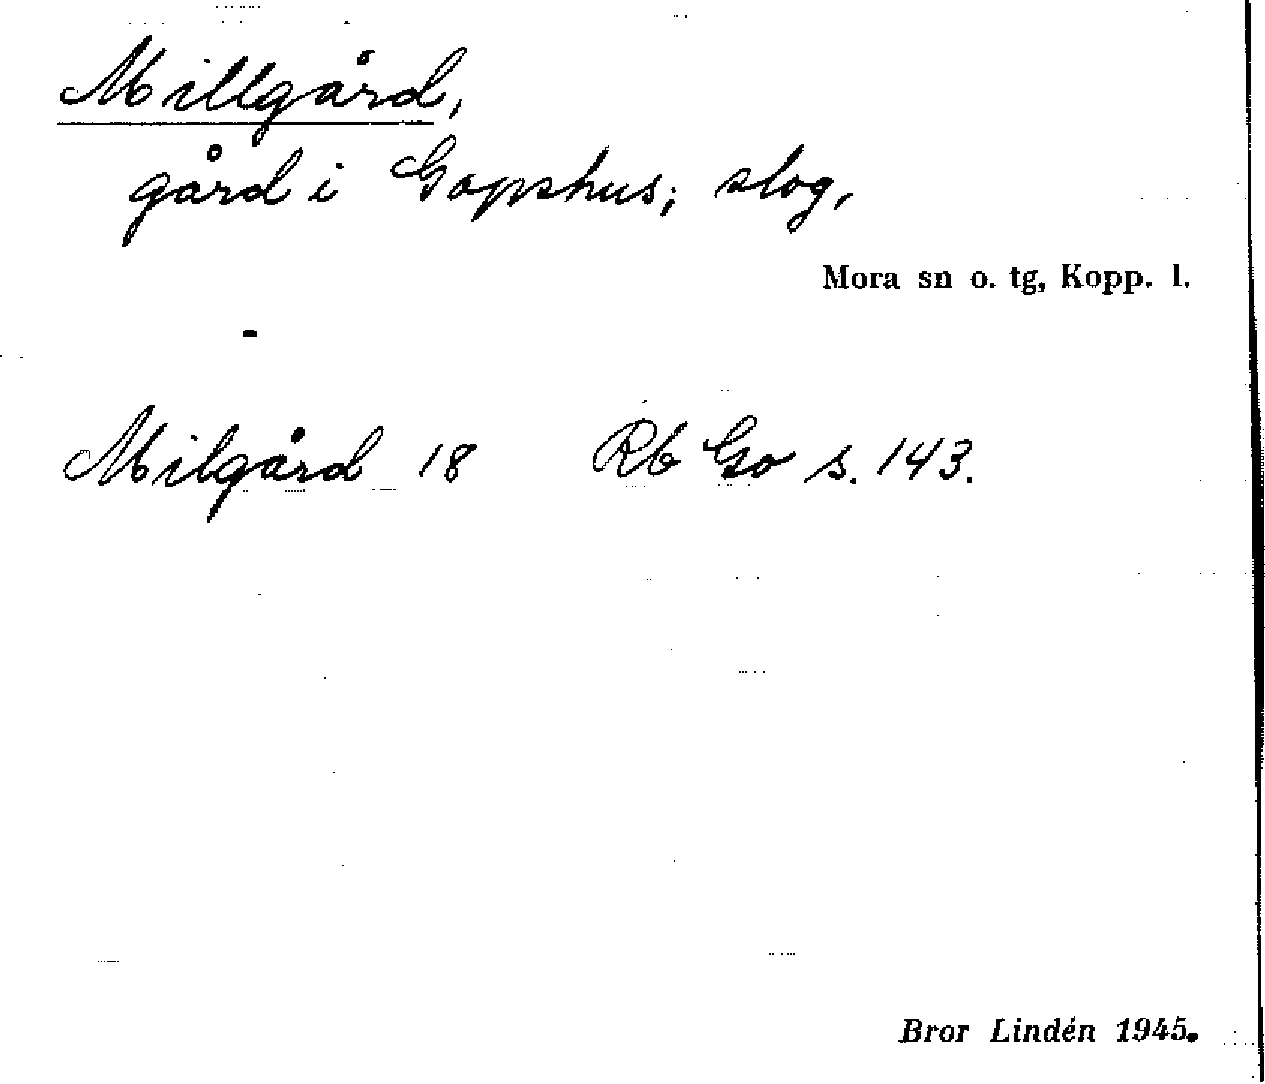 Millgård,
gård i Gopshus; slog,
Mora sn o. tg, Kopp. l.
-
Milgård 18 Rb Go s. 143.
Bror Lindén 1945.